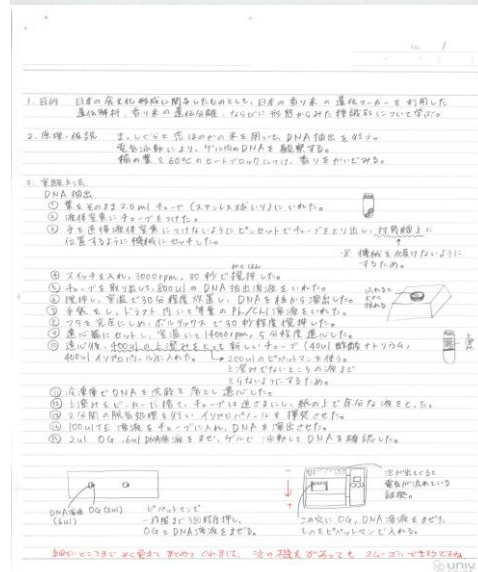 No. 1
1. 目的 日本の食文化形成に関与したものとして、日本の香り米の遺伝マーカーを利用した
遺伝解析、香り米の遺伝分離、ならびに形態からみた機識別について学ぶ。
2. 原理・仮説
DNA抽出を行う。
電気泳動により、ゲル内のDNAを観察する。
稲の葉を60℃のヒートブロックにつけ、香りをかいでみる。
3. 実験方法
DNA抽出
① 葉をそのまま2.0mlチューブ(ステンレス球いり)にいれた。
② 液体窒素にチューブをつけた。
③ 手を直接液体窒素につけないようにピンセットでチューブをとり出し、対角線上に
位置するように機械にセットした。
※ 機械を傾けないように
するため。
④ スイッチを入れ、3000rpm、30秒で撹拌した。
かくはん
⑤ チューブを取り出して、800ulのDNA抽出溶液をいれた。
⑥ 撹拌し、室温で30分程度放置し、DNAを核から溶出した。
⑦ 手袋をし、ドラフト内で
溶液をいれた。
⑧ フタを完全にしめ、ボルテックスで30秒程度撹拌した。
⑨ 遠心器にセットし、室温にて14000rpm、5分程度遠心した。
⑩ 遠心後、400ulの上澄みをとって新しいチューブ(40ul酢酸ナトリウム、
400ulイソプロパノール)に入れた。
200ulのピペットマンを使う。
上澄みでないところの液まで
とらないようにするため。
⑪ 冷凍庫でDNAを沈殿を落とし遠心した。
⑫ 上澄みをビーカーに捨て、チューブは逆さまにし、紙の上で余分な液をとった。
⑬ 2分間の脱気処理を行い、イソプロパノールを揮発させた。
⑭ 100ulTE溶液をチューブに入れ、DNAを溶出させた。
⑮ 2ul OG、6ul DNA溶液をまぜ、ゲルで泳動してDNAを確認した。
DNA溶液 OG(2ul)
(6ul)
ピペットマンで
一段階まで3回程度押し、
OGとDNA溶液をまぜる。
この穴にOG、DNA溶液をまぜた
ものをピペットマンで入れる。
泡が出てくると
電気が流れている
証拠。
univ